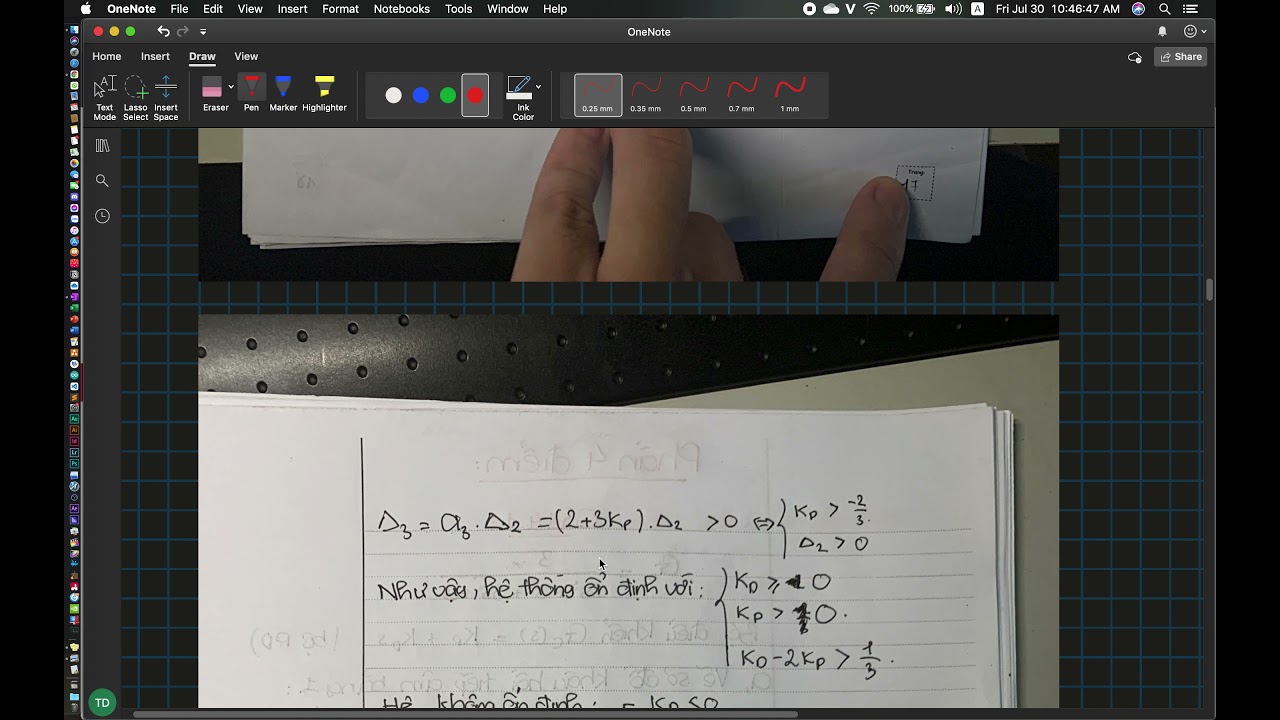 OneNote File Edit View Insert Format Notebooks Tools Window Help V 100% A Fri Jul 30 10:46:47 AM
OneNote
Home Insert Draw View Share
Text Mode Lasso Select Insert Space Eraser Pen Marker Highlighter Ink Color 0.25 mm 0.35 mm 0.5 mm 0.7 mm 1 mm
Trang
17
Phần 4 điểm:
Δ₃ = a₃.Δ₂ = (2+3Kp).Δ₂ >0 ⇔ { Kp > -2/3.
Δ₂ > 0
Như vậy, hệ thống ổn định với: { KD ≥ 0
Kp > 0.
KD - 2Kp > 1/3.
TD